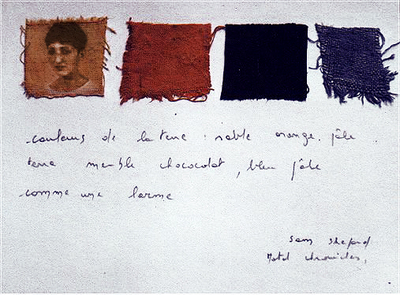 couleurs de la terre : sable orange, pâle
terre meuble chococolat, bleu pâle
comme une larme
Sam Shepard
Motel chronicles,